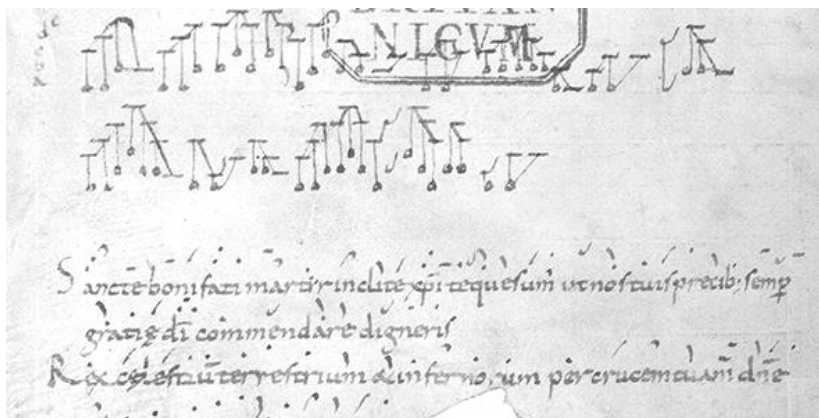 NICVM
Sancte bonifati martir inclite xp̄i te quesum̄ ut nos tuis precib; semp̄
gratię dī commendare digneris
Rex cęlestiū terrestrium ac infernorum per crucem tuam dn̄e